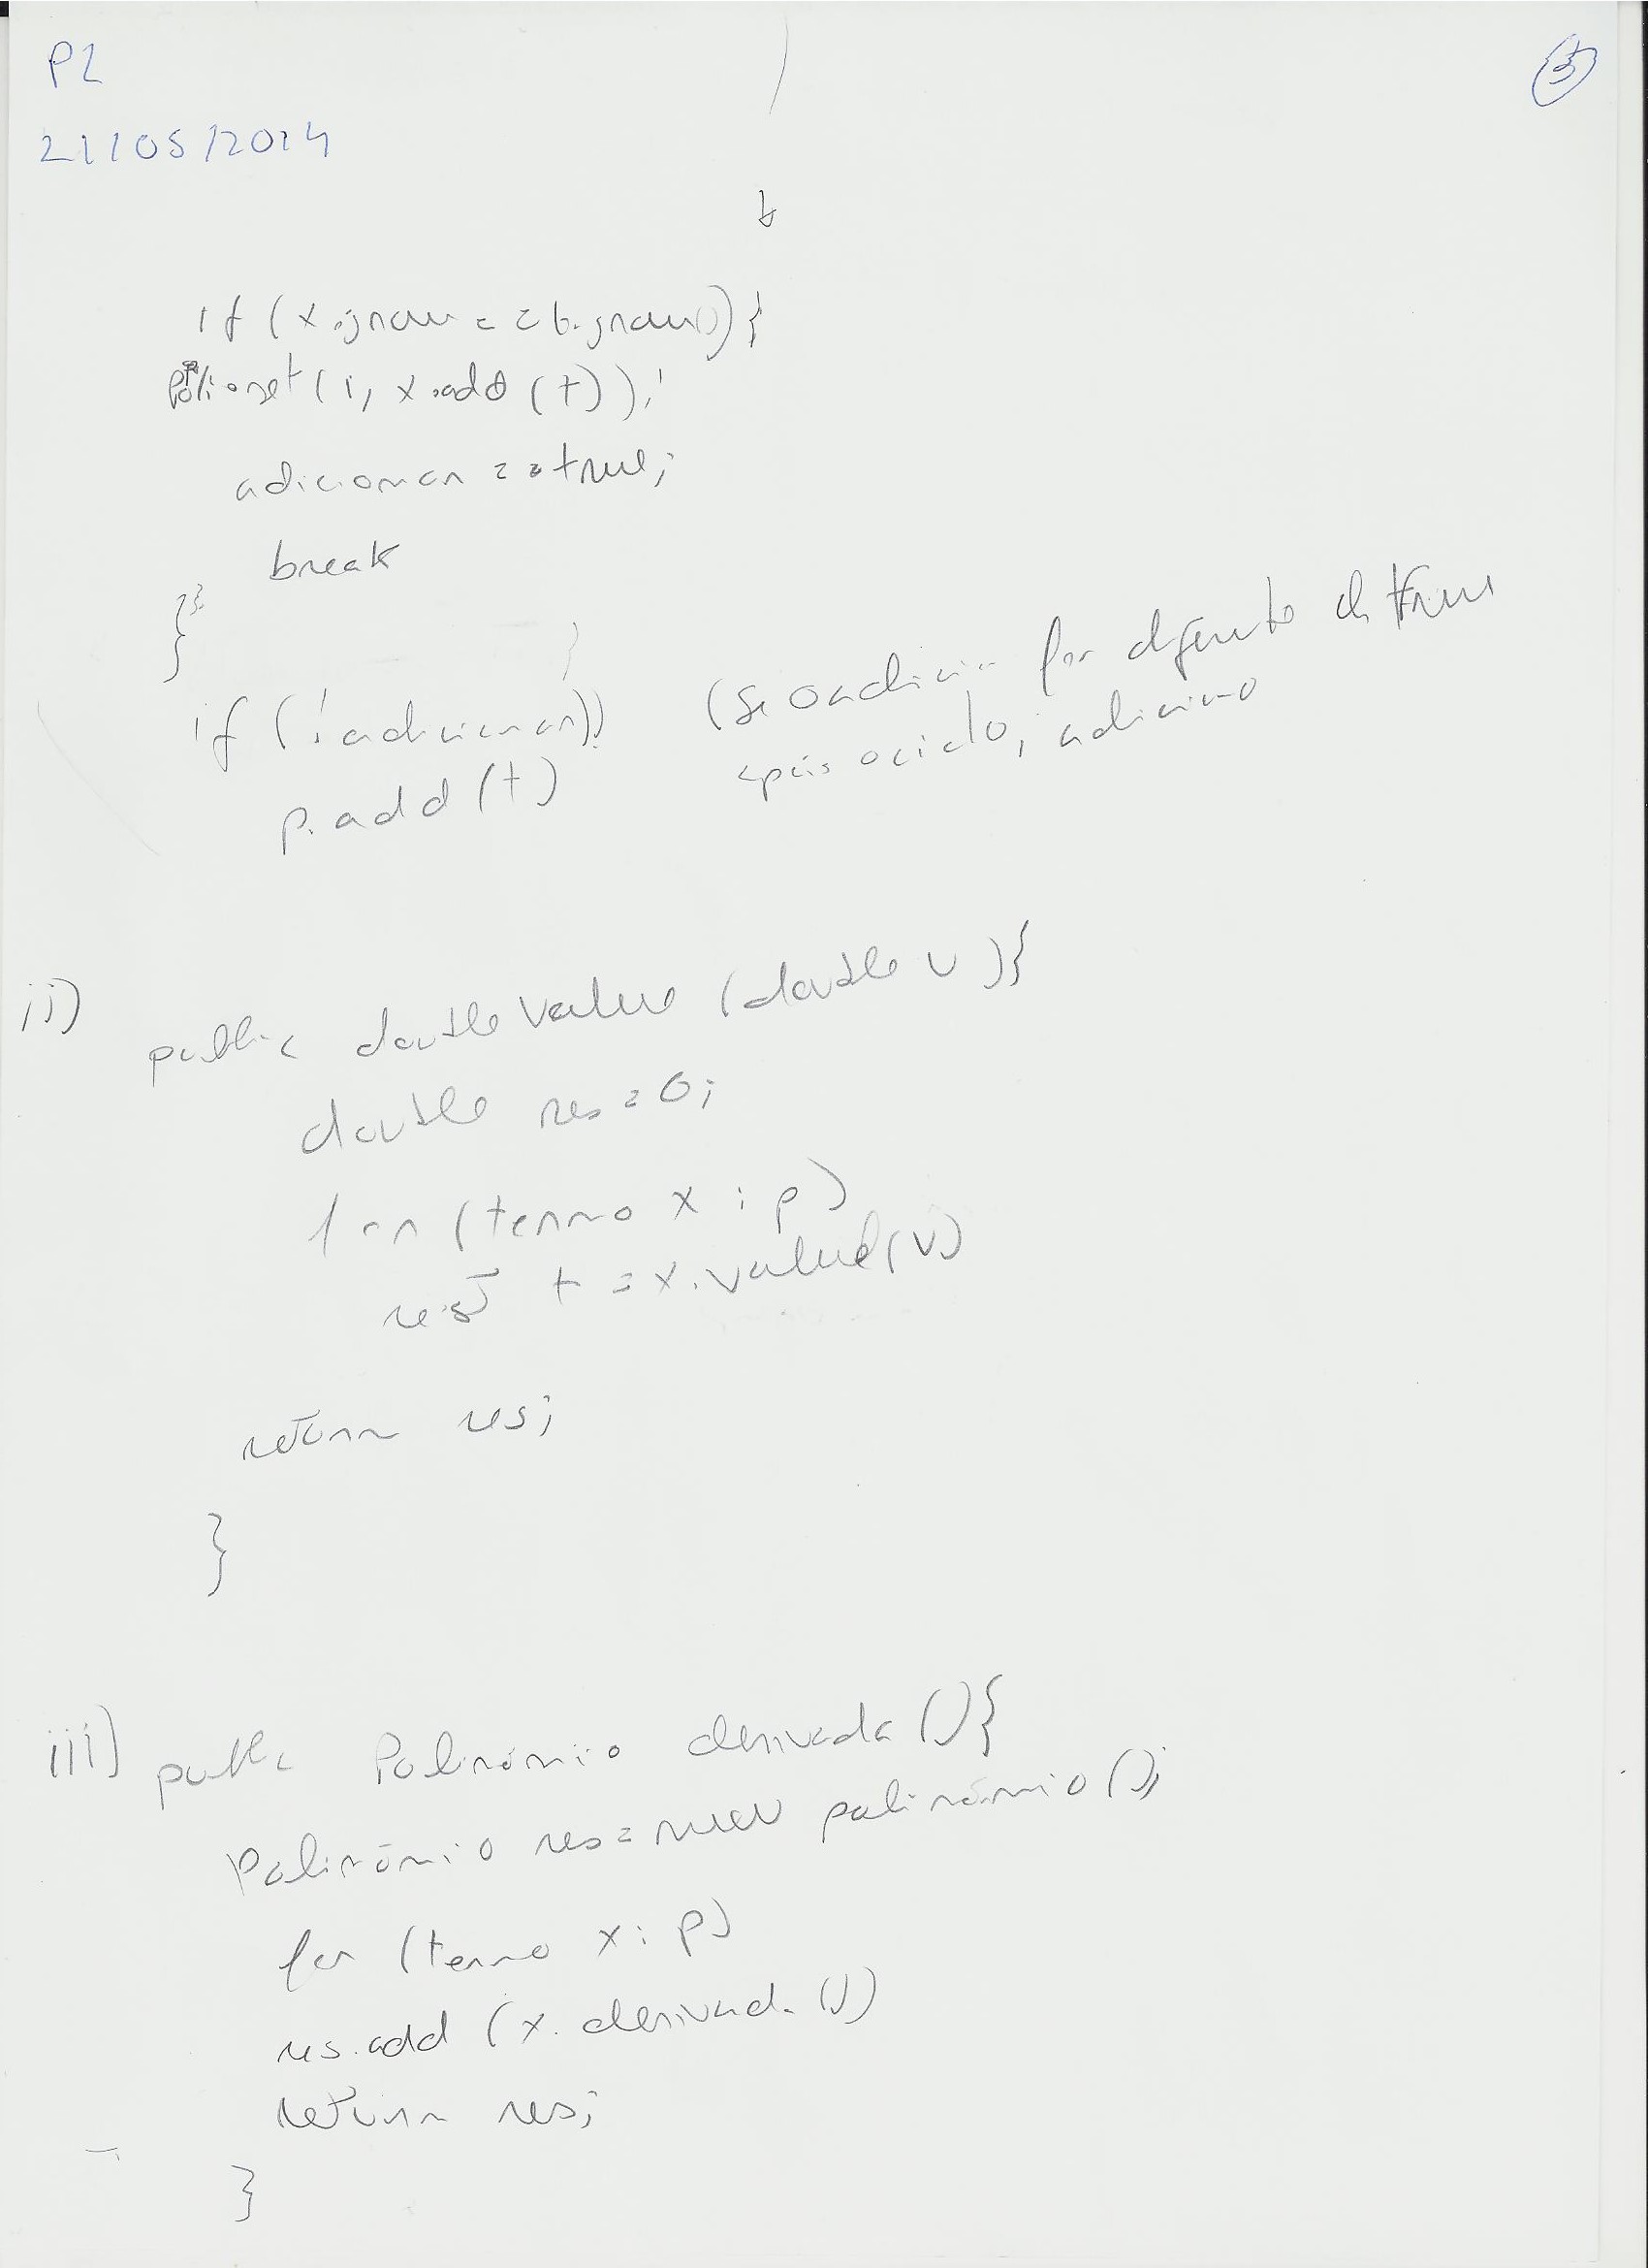 P2
21/05/2014
3
if (x.grau == t.grau()){
set(i, x.add(t));
adicionar == true;
break
}}
if (!adicionar)) (Se o adicionar for diferente de true
p.add(t) após o ciclo, adiciono
ii)
public double value (double v){
double res = 0;
for (termo x : p)
res += x.value(v)
return res;
}
iii) public Polinómio derivada (){
Polinómio res = new polinómio ();
for (termo x : p)
res.add (x.derivada ())
return res;
}